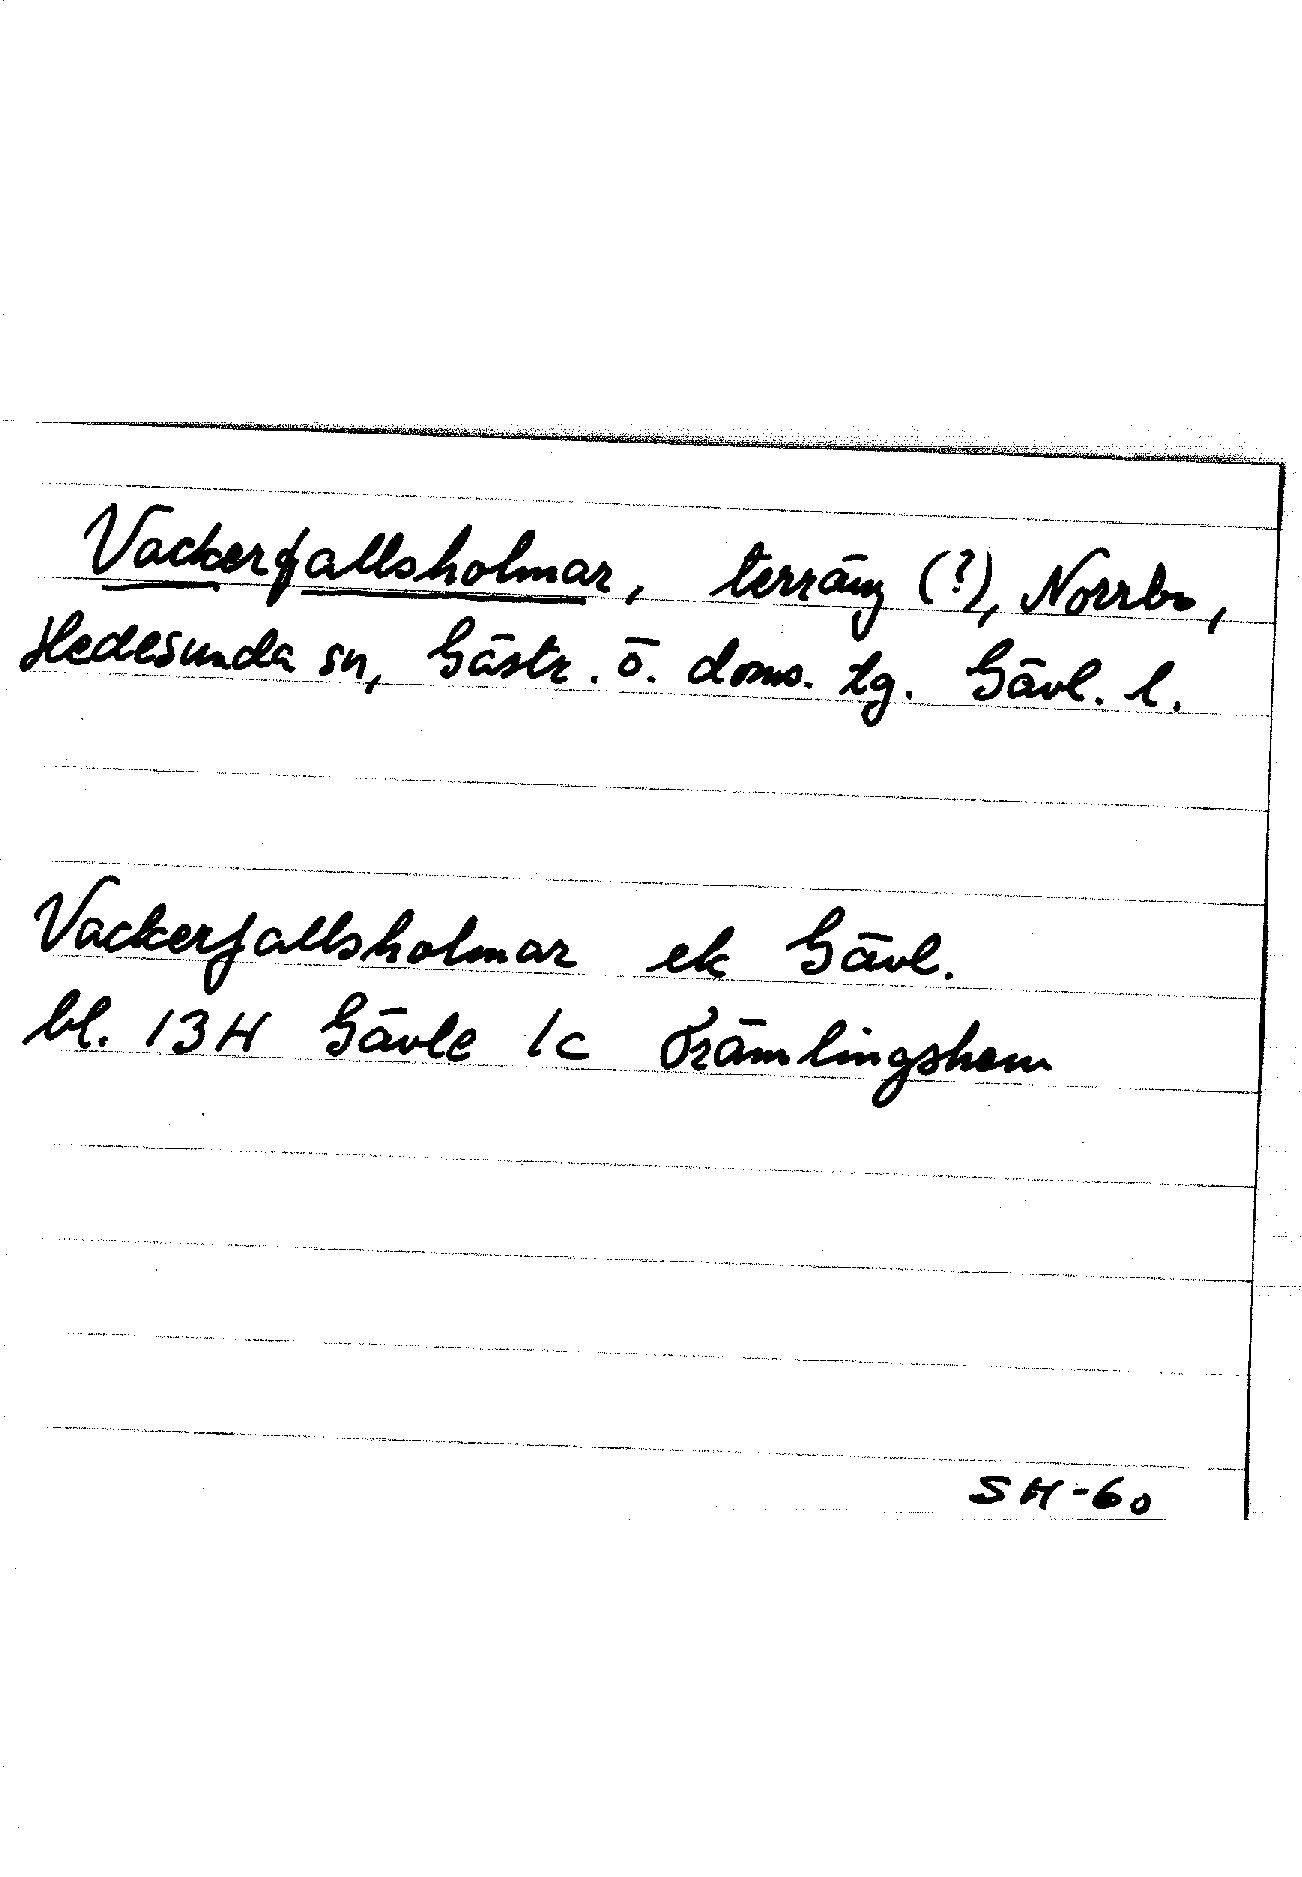 Vackerfallsholmar, terräng (?), Norrbo,
Hedesunda sn, Gästr. ö. doms. tg. Gävl. l.
Vackerfallsholmar ek Gävl.
bl. 13H Gävle 1c Främlingshem
SH-60